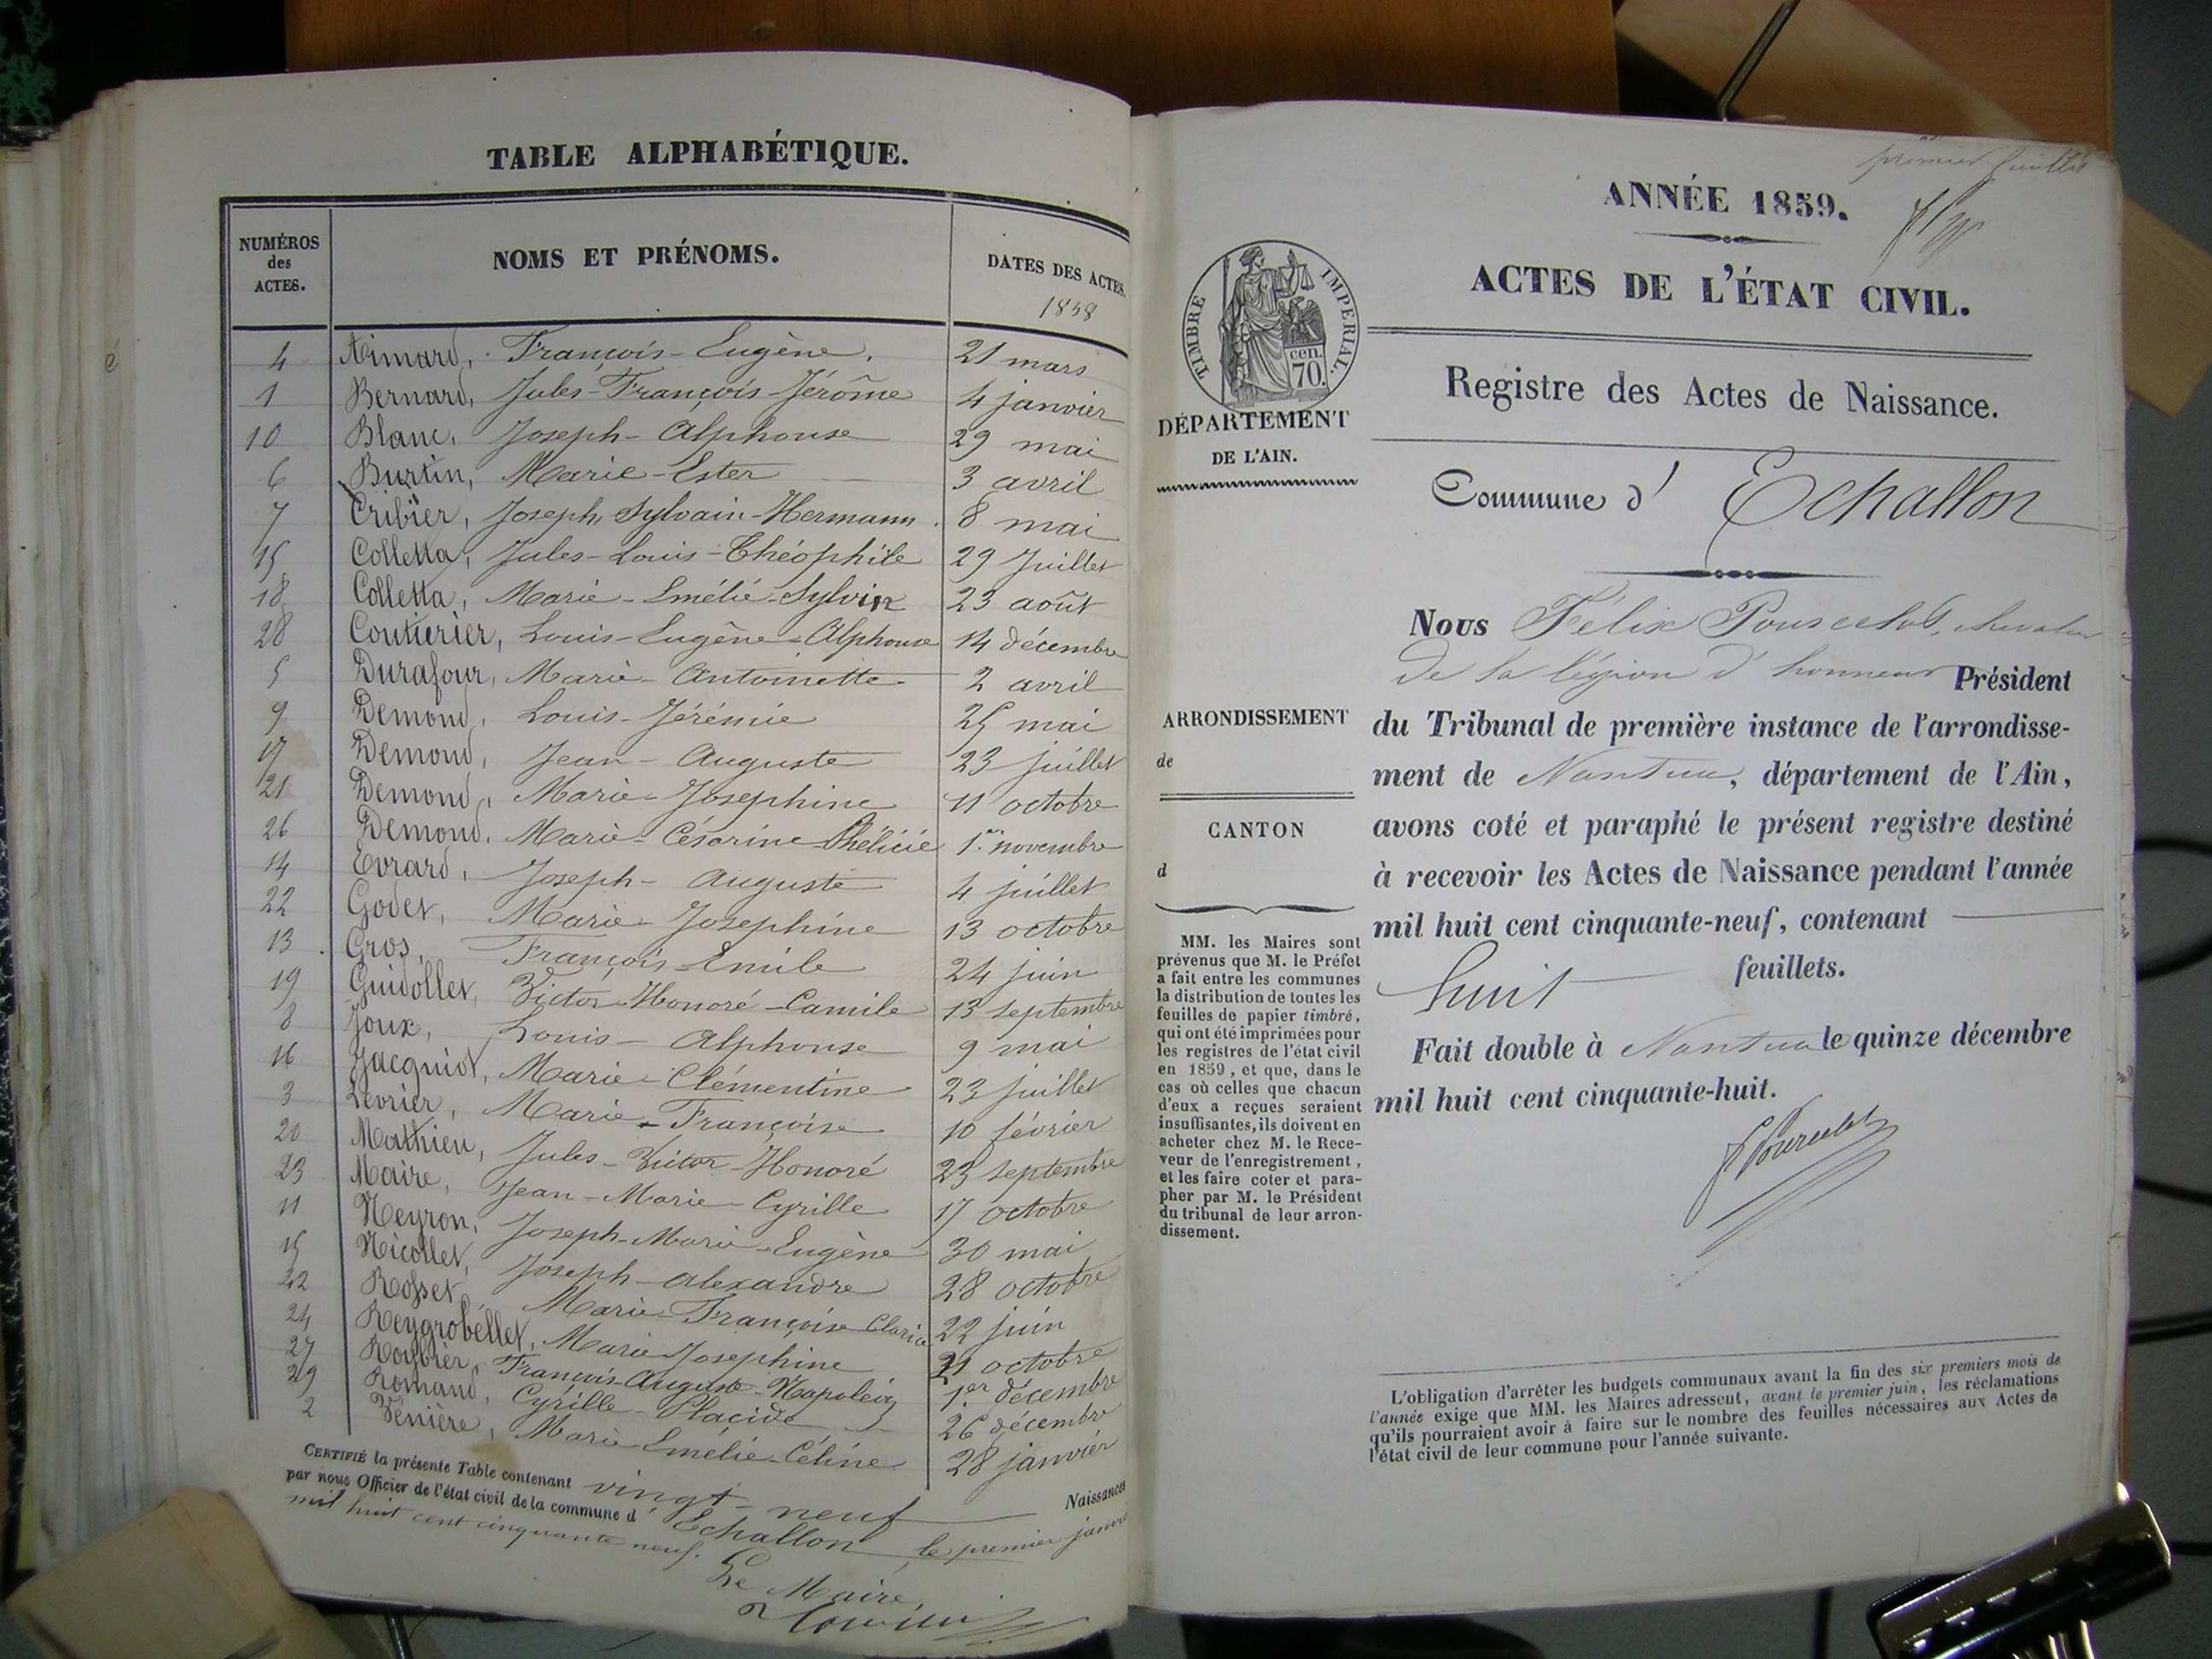 TABLE ALPHABÉTIQUE.
NUMÉROS des ACTES. NOMS ET PRÉNOMS. DATES DES ACTES.
1858
4 Aimard, François-Eugène. 21 mars
1 Bernard, Jules-François-Jérôme 4 janvier
10 Blanc, Joseph-Alphonse 29 mai
6 Burtin, Marie-Ester 3 avril
7 Cribier, Joseph, Sylvain-Hermann. 8 mai
15 Colletta, Jules-Louis-Théophile 29 Juillet
18 Colletta, Marie-Emélie-Sylvie 23 août
28 Couturier, Louis-Eugène-Alphonse 14 décembre
5 Durafour, Marie-Antoinette 2 avril
9 Demond, Louis-Jérémie 25 mai
17 Demond, Jean-Auguste 23 juillet
21 Demond, Marie-Josephine 11 octobre
26 Demond, Marie-Césarine Phélicie 1er novembre
14 Evrard, Joseph-Auguste 4 juillet
22 Godet, Marie-Josephine 13 octobre
13 Gros, François-Emile 24 juin
19 Guidollet, Victor-Honoré-Camile 13 septembre
8 Joux, Louis-Alphonse 9 mai
16 Jacquiot, Marie-Clémentine 23 juillet
3 Levrier, Marie-Françoise 10 février
20 Mathieu, Jules-Victor-Honoré 23 septembre
23 Maire, Jean-Marie-Cyrille 17 octobre
11 Neyron, Joseph-Marie-Eugène 30 mai
15 Nicollet, Joseph-alexandre 28 octobre
12 Rosset Marie-Françoise Clarice 22 juin
24 Reygrobellet, Marie Josephine 21 octobre
27 Roybier, François-Auguste-Napoléon 1er décembre
29 Romand, Cyrille-Placide 26 décembre
2 Vénière, Marie-Emélie-Céline 28 janvier
CERTIFIÉ la présente Table contenant vingt-neuf Naissances
par nous Officier de l'état civil de la commune d' Echallon, le premier janvier
mil huit cent cinquante neuf.
Le Maire,
premier feuillet
ANNÉE 1859.
ACTES DE L'ÉTAT CIVIL.
TIMBRE IMPÉRIAL.
70 cen.
DÉPARTEMENT
DE L'AIN.
ARRONDISSEMENT
de
CANTON
d
MM. les Maires sont
prévenus que M. le Préfet
a fait entre les communes
la distribution de toutes les
feuilles de papier timbré,
qui ont été imprimées pour
les registres de l'état civil
en 1859, et que, dans le
cas où celles que chacun
d'eux a reçues seraient
insuffisantes, ils doivent en
acheter chez M. le Rece-
veur de l'enregistrement,
et les faire coter et para-
pher par M. le Président
du tribunal de leur arron-
dissement.
Registre des Actes de Naissance.
Commune d' Echallon
Nous Félix Pourcelot, chevalier
de la légion d'honneur Président
du Tribunal de première instance de l'arrondisse-
ment de Nantua, département de l'Ain,
avons coté et paraphé le présent registre destiné
à recevoir les Actes de Naissance pendant l'année
mil huit cent cinquante-neuf, contenant
huit feuillets.
Fait double à Nantua le quinze décembre
mil huit cent cinquante-huit.
F Pourcelot
L'obligation d'arrêter les budgets communaux avant la fin des six premiers mois de
l'année exige que MM. les Maires adressent, avant le premier juin, les réclamations
qu'ils pourraient avoir à faire sur le nombre des feuilles nécessaires aux Actes de
l'état civil de leur commune pour l'année suivante.